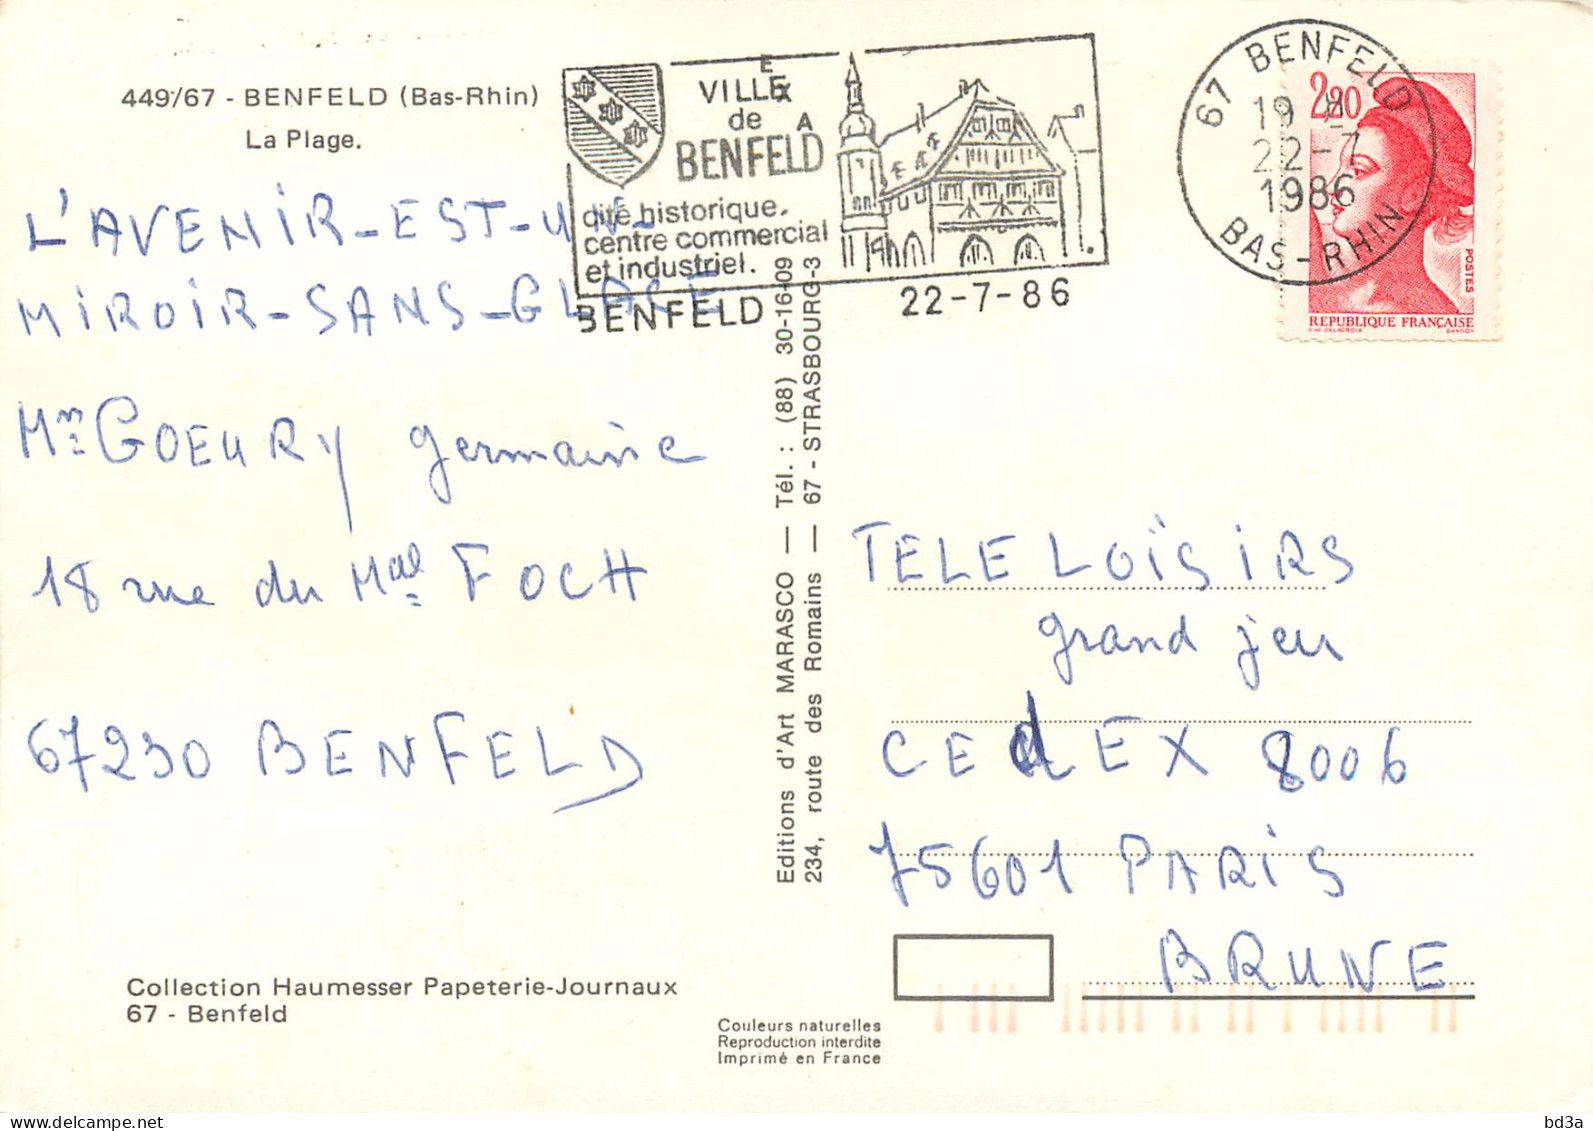 449/67 - BENFELD (Bas-Rhin)
La Plage.
VILLE
de
BENFELD
cité historique.
centre commercial
et industriel.
BENFELD
22-7-86
67 BENFELD
19 H
22-7
1986
BAS-RHIN
2,20
POSTES
REPUBLIQUE FRANÇAISE
D'AP. DELACROIX
GANDON
L'AVENIR-EST-UN-
MIROIR-SANS-GLACE
Mme GOEURY germaine
18 rue du Mal FOCH
67230 BENFELD
Editions d'Art MARASCO — Tél. : (88) 30-16-09
234, route des Romains — 67 - STRASBOURG-3
TELE LOÏSIRS
grand jeu
CEdEX 8006
75601 PARIS
BRUNE
Collection Haumesser Papeterie-Journaux
67 - Benfeld
Couleurs naturelles
Reproduction interdite
Imprimé en France
bd3a